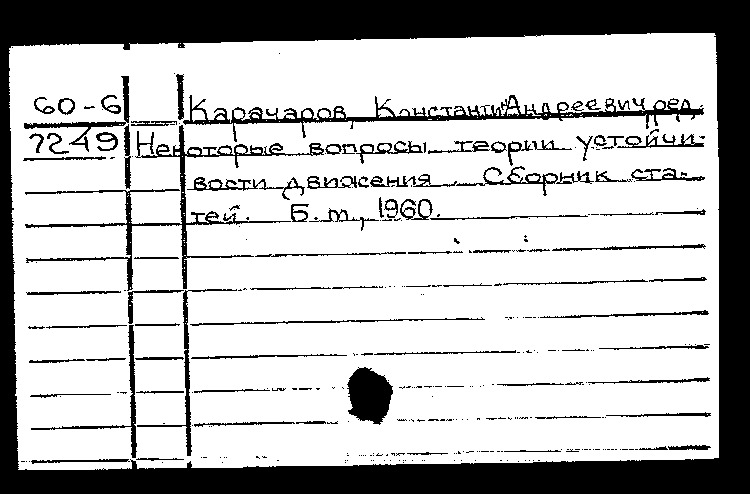 60-6 Карачаров, Константин Андреевич, ред.
7249 Некоторые вопросы теории устойчи-
вости движения. Сборник ста-
тей. Б. м., 1960.